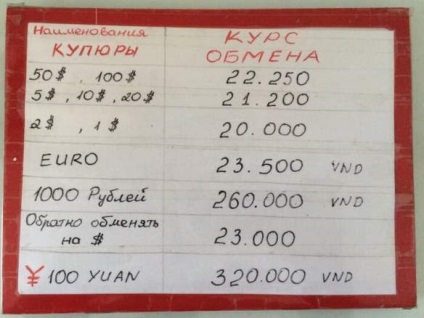 Наименования КУРС
КУПЮРЫ ОБМЕНА
50$, 100$ 22.250
5$, 10$, 20$ 21.200
2$, 1$ 20.000
EURO 23.500 VND
1000 Рублей 260.000 VND
Обратно обменять
на $ 23.000
¥ 100 YUAN 320.000 VND